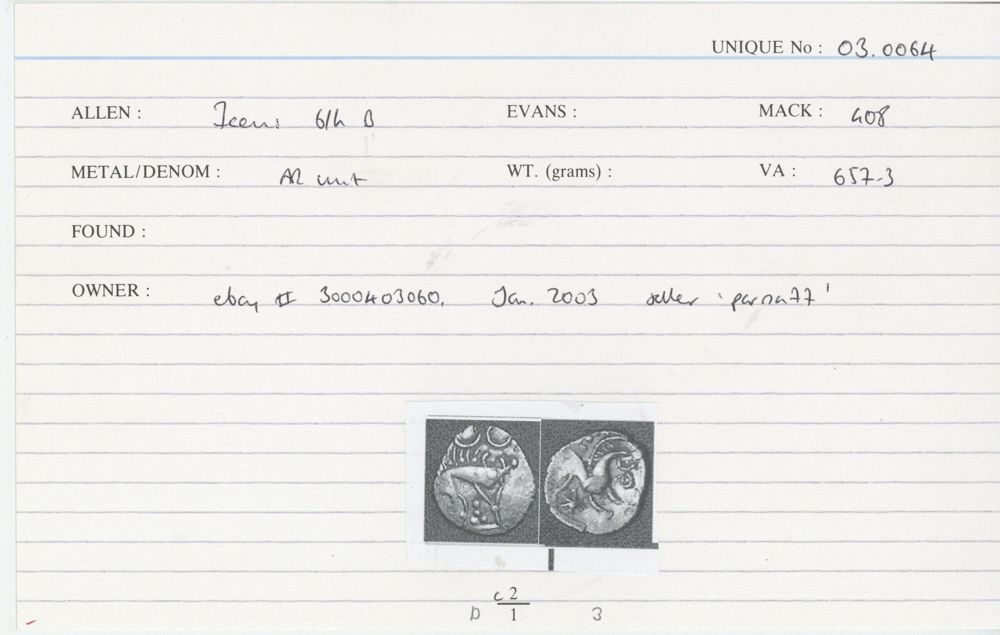 UNIQUE No : 03.0064
ALLEN : Iceni 6/h B EVANS : MACK : 408
METAL/DENOM : AR unit WT. (grams) : VA : 657-3
FOUND :
OWNER : ebay # 3000403060, Jan. 2003 seller 'parna77'
c 2
D 1 3